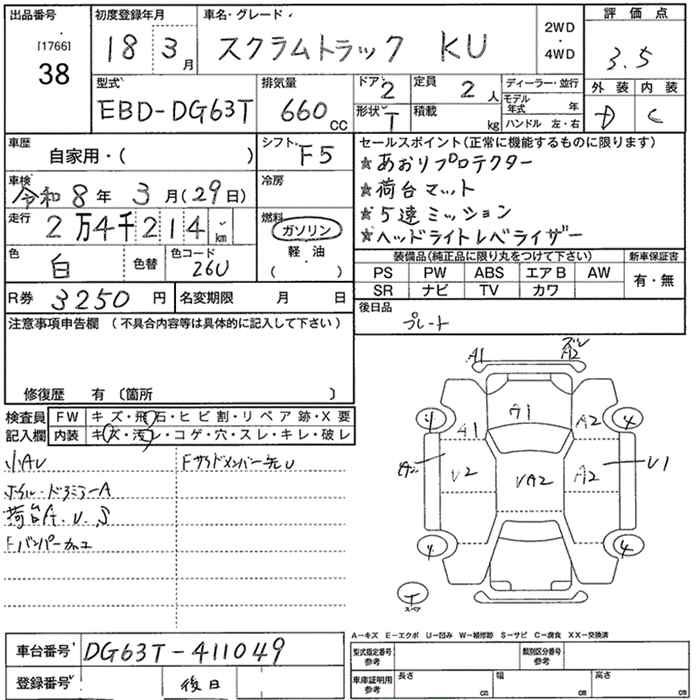 出品番号 初度登録年月 車名・グレード 2WD・4WD 評価点
[1766] 38 18 3月 スクラムトラック KU 3.5
外装 内装
D C
型式 排気量 ドア 定員 ディーラー・並行
EBD-DG63T 660cc 2 2人 モデル年式 年
形状 T 積載 kg ハンドル 左・右
車歴 シフト セールスポイント(正常に機能するものに限ります)
自家用・( ) F5 ★あおりプロテクター
車検 令和8年3月(29日) 冷房 ★荷台マット
走行 2万4千214km 燃料 ガソリン ★5速ミッション
軽・油 ★ヘッドライトレベライザー
( )
色 白 色替 色コード 26U
装備品(純正品に限り丸をつけて下さい) 新車保証書
PS PW ABS エアB AW 有・無
SR ナビ TV カワ
R券 3250円 名変期限 月 日
後日品
プレート
注意事項申告欄(不具合内容等は具体的に記入して下さい)
修復歴 有〔箇所 〕
検査員 FW キズ・飛石・ヒビ割・リペア跡・X要
記入欄 内装 キズ・汚レ・コゲ・穴・スレ・キレ・破レ
小AU Fサイドメンバー先U
荷台A.U.S
Fバンパー加工
A1 ズレ A2
A1
4 A1 A2 4
U2 UA2 A2 U1
4 4
T
スペア
A-キズ E-エクボ U-凹み W-補修跡 S-サビ C-腐食 XX-交換済
車台番号 DG63T-411049
型式指定番号 参考 類別区分番号 参考
登録番号 後日
車庫証明用 参考 長さ cm 幅 cm 高さ cm